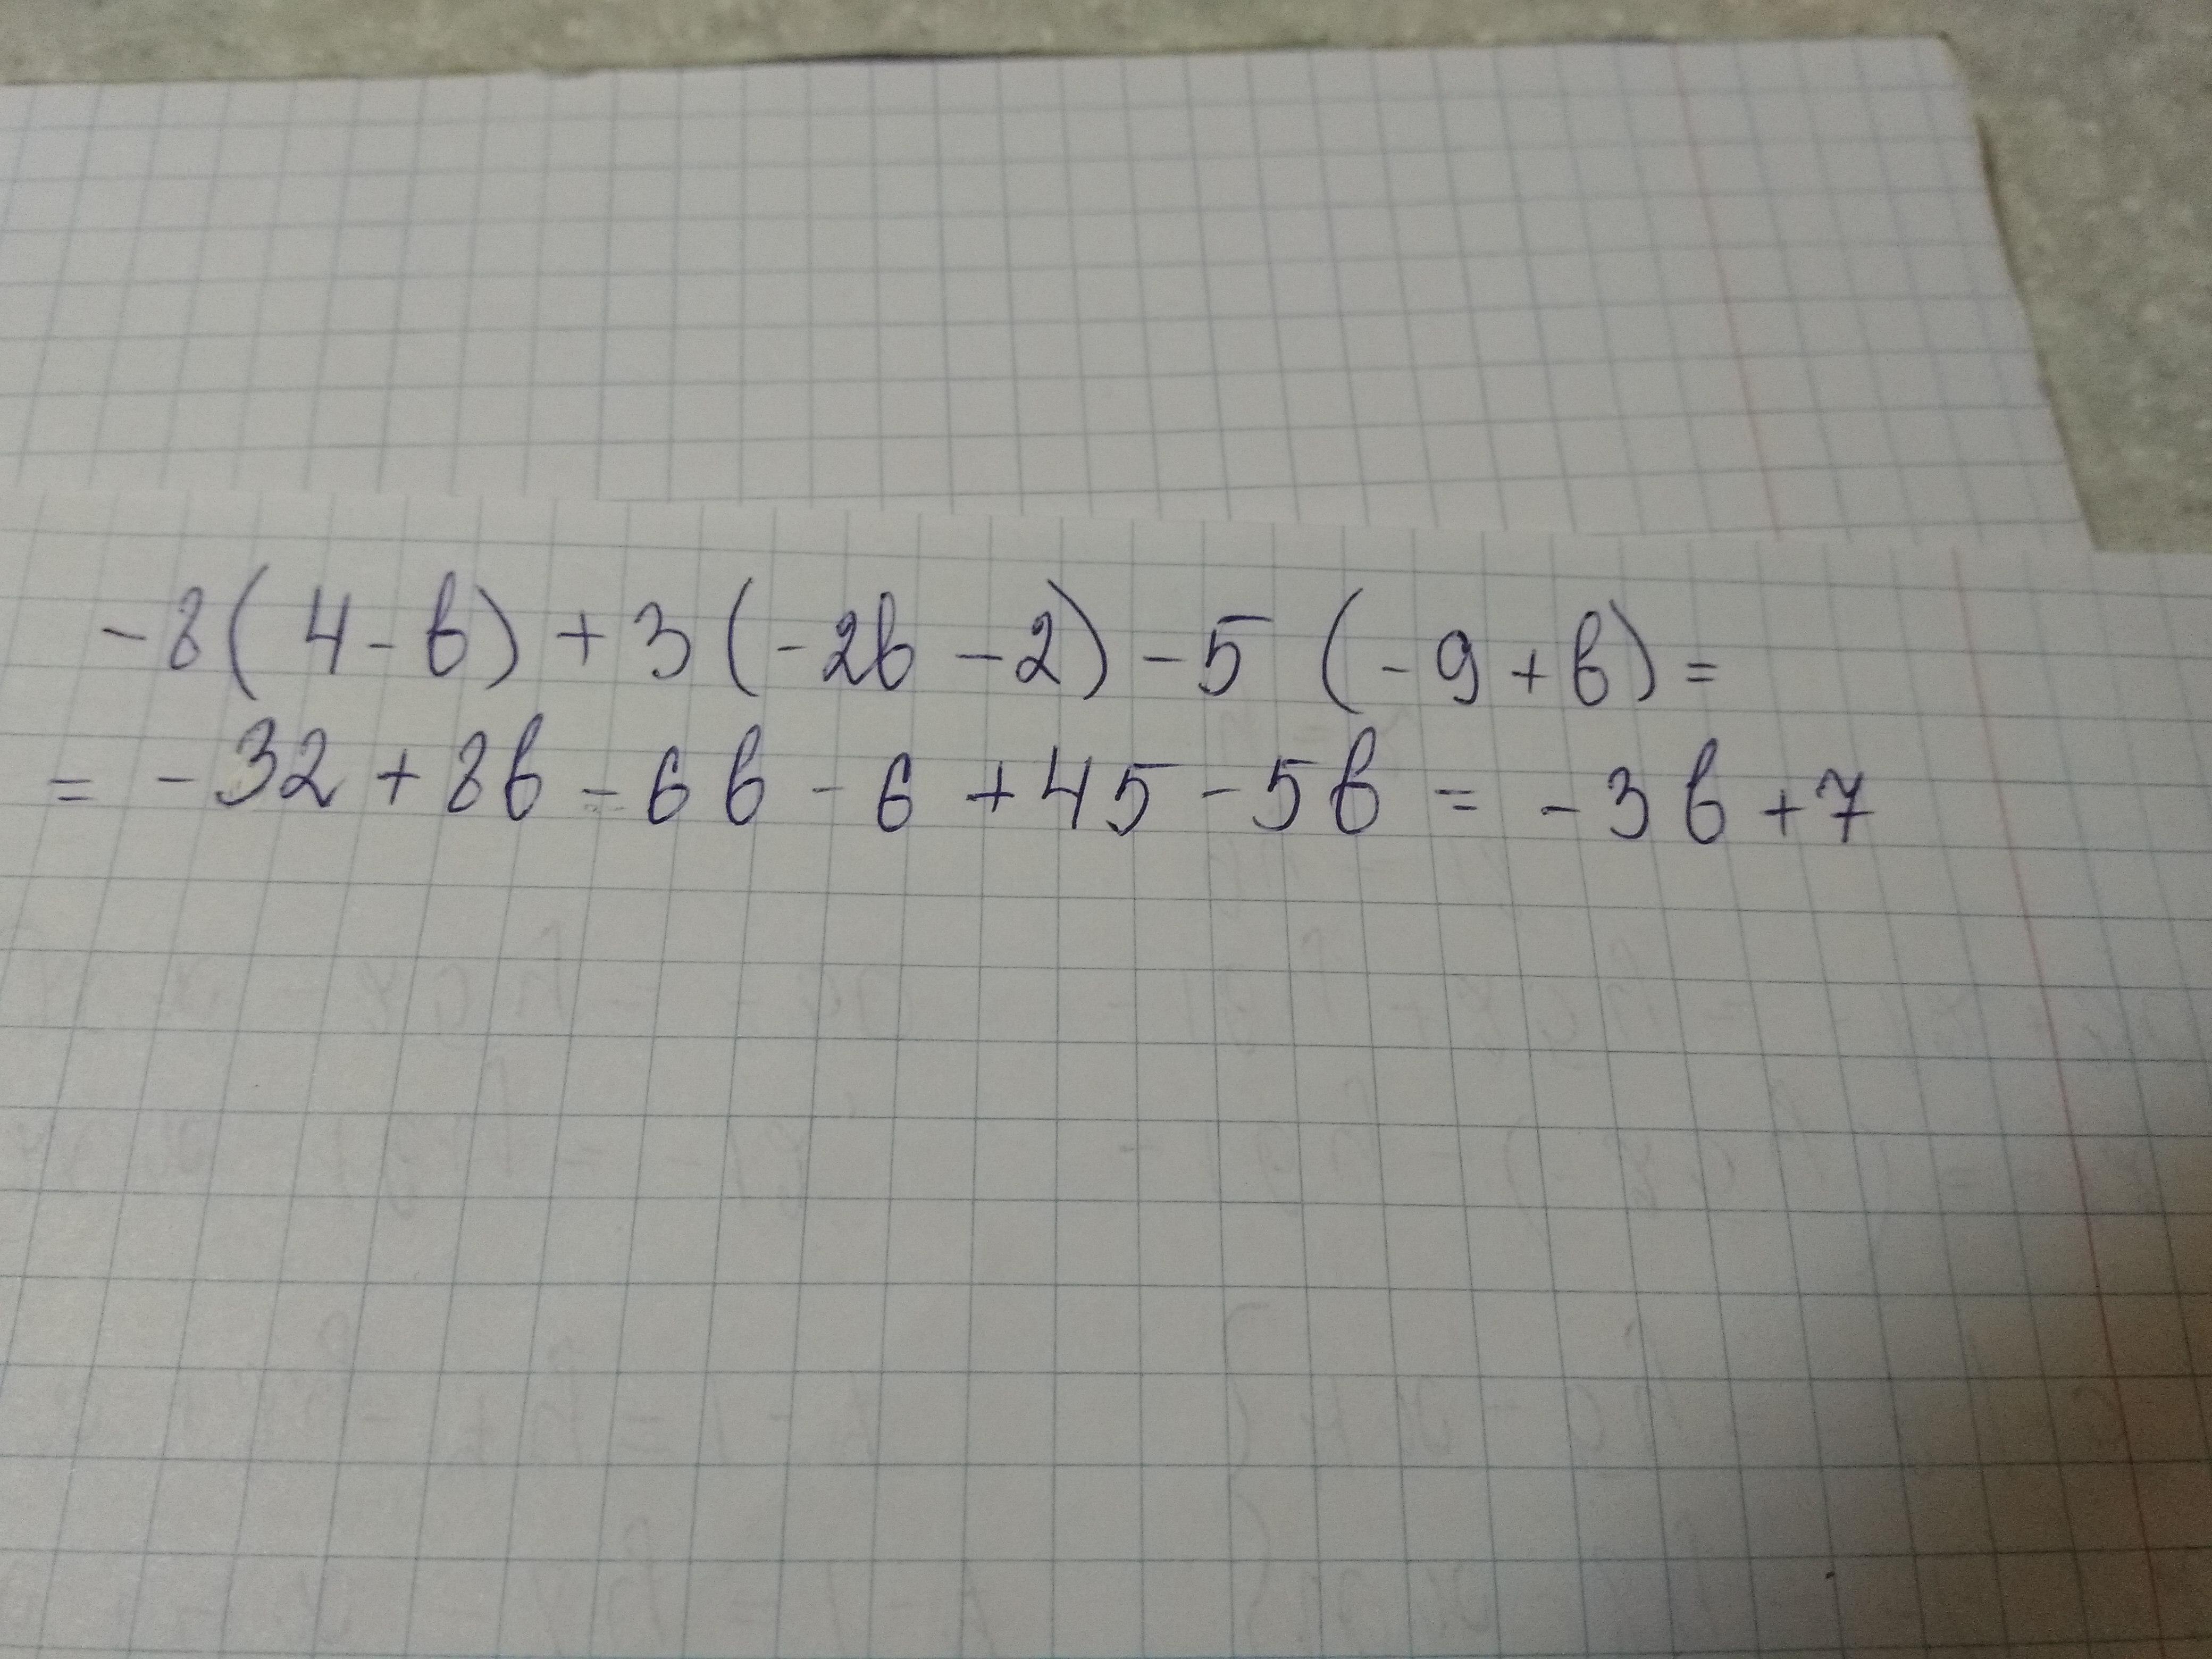 -8(4-b)+3(-2b-2)-5(-9+b)=
=-32+8b-6b-6+45-5b=-3b+7